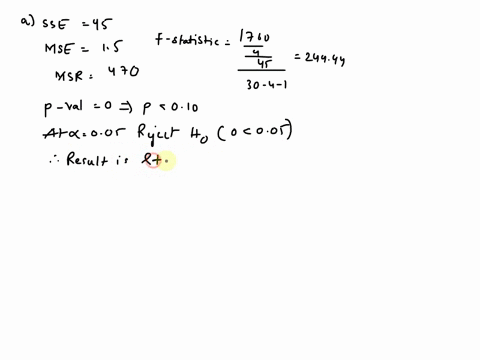 a) SSE = 45
MSE = 1.5
MSR = 470
f-statistic = 1760 / 4 / 45 / 30-4-1 = 244.44
p-val = 0 ⇒ p < 0.10
At α = 0.05 Reject H₀ (0 < 0.05)
∴ Result is